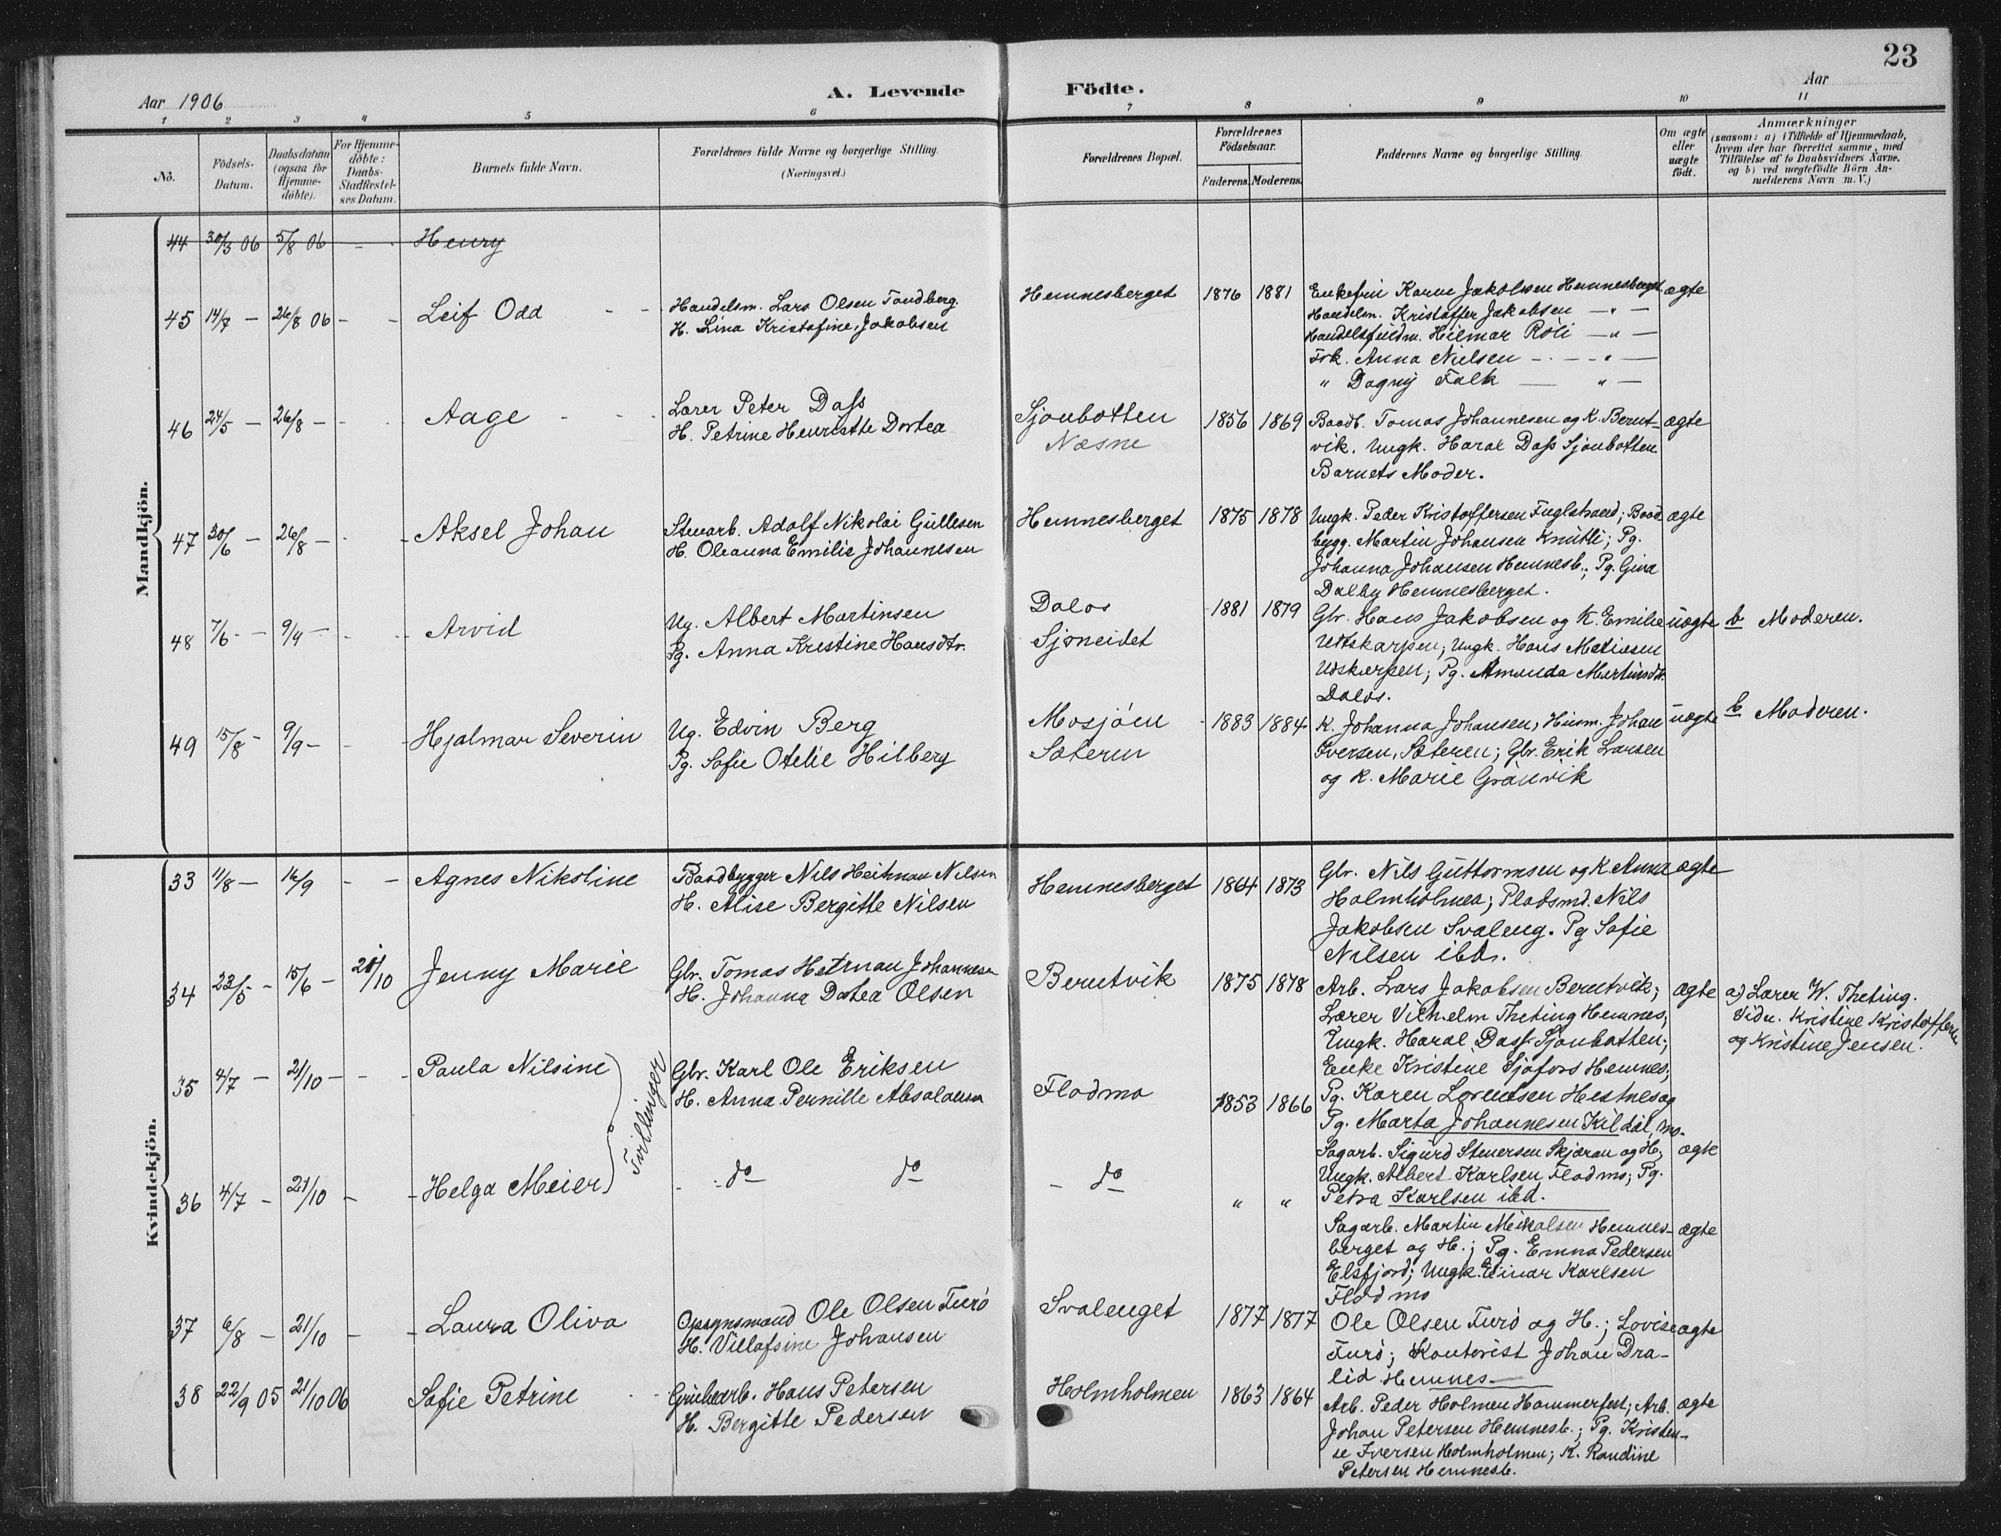 23
Aar 1906
A. Levende Födte.
Aar
1 2 3 4 5 6 7 8 9 10 11
No.
Födsels-
Datum.
Daabsdatum
(ogsaa for
Hjemme-
döbte).
For Hjemme-
döbte:
Daabs-
Stadfæstel-
ses Datum.
Barnets fulde Navn.
Forældrenes fulde Navne og borgerlige Stilling.
(Næringsvei.)
Forældrenes Bopæl.
Forældrenes
Födselsaar.
Faderens. Moderens.
Faddernes Navne og borgerlige Stilling.
Om ægte
eller
uægte
födt.
Anmærkninger
(saasom: a) i Tilfælde af Hjemmedaab,
hvem der har forrettet samme, med
Tilföielse af to Daabsvidners Navne,
og b) ved uægtefödte Börn An-
melderens Navn m. V.)
Mandkjön.
44 30/3 06 5/8 06 - Henry
45 14/7 - 26/8 06 - - Leif Odd - -
Handelsm. Lars Olsen Tondberg.
H. Lina Kristofine Jakobsen
Hemnesberget 1876 1881
Enkefru Karen Jakobsen Hemnesberget ægte
Handelsm. Kristoffer Jakobsen — " —
Hilmar Röli — " —
Frk. Anna Nielsen - - - " —
" Dagny Falk — " —
46 24/5 - 26/8 - - Aage - - -
Lærer Peter Dass
H. Petrine Henriette Dortea
Sjonbotten
Næsne
1856 1869
Baadb. Tomas Johannesen og K. Bernt- ægte
vik. Ungk. Haral Dass Sjonbotten
Barnets Moder.
47 30/6 - 26/8 - - - Aksel Johan
Stenarb. Adolf Nikolai Gullesen
H. Oleanna Emilie Johannesen
Hemnesberget 1875 1878
Ungk. Peder Kristoffersen Fuglstrand; Baad- ægte
bygg. Martin Johansen Knutli; Pg.
Johanna Johansen Hemnesb.; Pg. Gina
Dalby Hemnesberget.
48 7/6 - - 9/9 - - - Arvid
Ug. Albert Martinsen
Pg. Anna Kristine Hansdtr.
Dalos
Sjoneidet
1881 1879
Gbr. Hans Jakobsen og K. Emilie uægte b Moderen.
Utskarpen; Ungk. Hans Matiesen
Utskarpen; Pg. Amanda Martinsdt.
Dalos.
49 15/8 - 9/9 - - - Hjalmar Severin
Ug. Edvin Berg
Pg. Sofie Otelie Hilberg
Mosjöen
Sæteren
1883 1884
K. Johanna Johansen, Husm. Johan uægte b Moderen.
Iversen, Sæteren; Gbr. Erik Larsen
og K. Marie Granvik
Kvindekjön.
33 11/8 - 16/9 - - Agnes Nikoline
Baadbygger Nils Heitman Nilsen
H. Alise Bergitte Nilsen
Hemnesberget 1864 1873
Gbr. Nils Guttormsen og K Anna ægte
Holmholmen; Pladsmd. Nils
Jakobsen Svaleng. Pg Sofie
Nilsen ibd.
34 22/5 - 15/6 - 21/10 Jenny Marie
Gbr. Tomas Hetman Johannesen
H. Johanna Dortea Olsen
Berntvik 1875 1878
Arb. Lars Jakobsen Berntvik; ægte a) Lærer W. Theting.
Lærer Vilhelm Theting Hemnes; Vidn. Kristine Kristoffersen
Ungk. Haral Dass Sjonbotten; og Kristine Jensen.
Enke Kristine Sjøfors Hemnes;
Pg. Karen Lorentsen Hestnes og
Pg. Marta Johannesen Kildal, mo.
35 4/7 - 21/10 - - - Paula Nilsine
Tvillinger
Gbr. Karl Ole Eriksen
H. Anna Pernille Absalonsen
Flodmo 1853 1866
Sagarb. Sigurd Stenersen Skjæran og H; ægte
Ungk. Albert Karlsen Flodmo; Pg.
Petra Karlsen ibd.
36 4/7 - 21/10 - - Helga Meier
- - do do - do " "
Sagarb. Martin Mikalsen Hemnes- ægte
berget og H.; Pg. Emma Pedersen
Elsfjord; Ungk. Einar Karlsen
Flodmo
37 6/8 - 21/10 - - Laura Oliva
Opsynsmand Ole Olsen Furö
H. Villafsine Johansen
Svalenget 1877 1877
Ole Olsen Furö og H.; Lovise ægte
Furö; Kontorist Johan Dra-
lid Hemnes
38 22/9 05 21/10 06 Sofie Petrine
Grubearb. Hans Petersen
H. Bergitte Pedersen
Holmholmen 1863 1864
Arb. Peder Holmen Hammerfest; Arb. ægte
Johan Petersen Hemnesb.; Pg. Kristen-
se Iversen Holmholmen; K. Randine
Petersen Hemnesb.